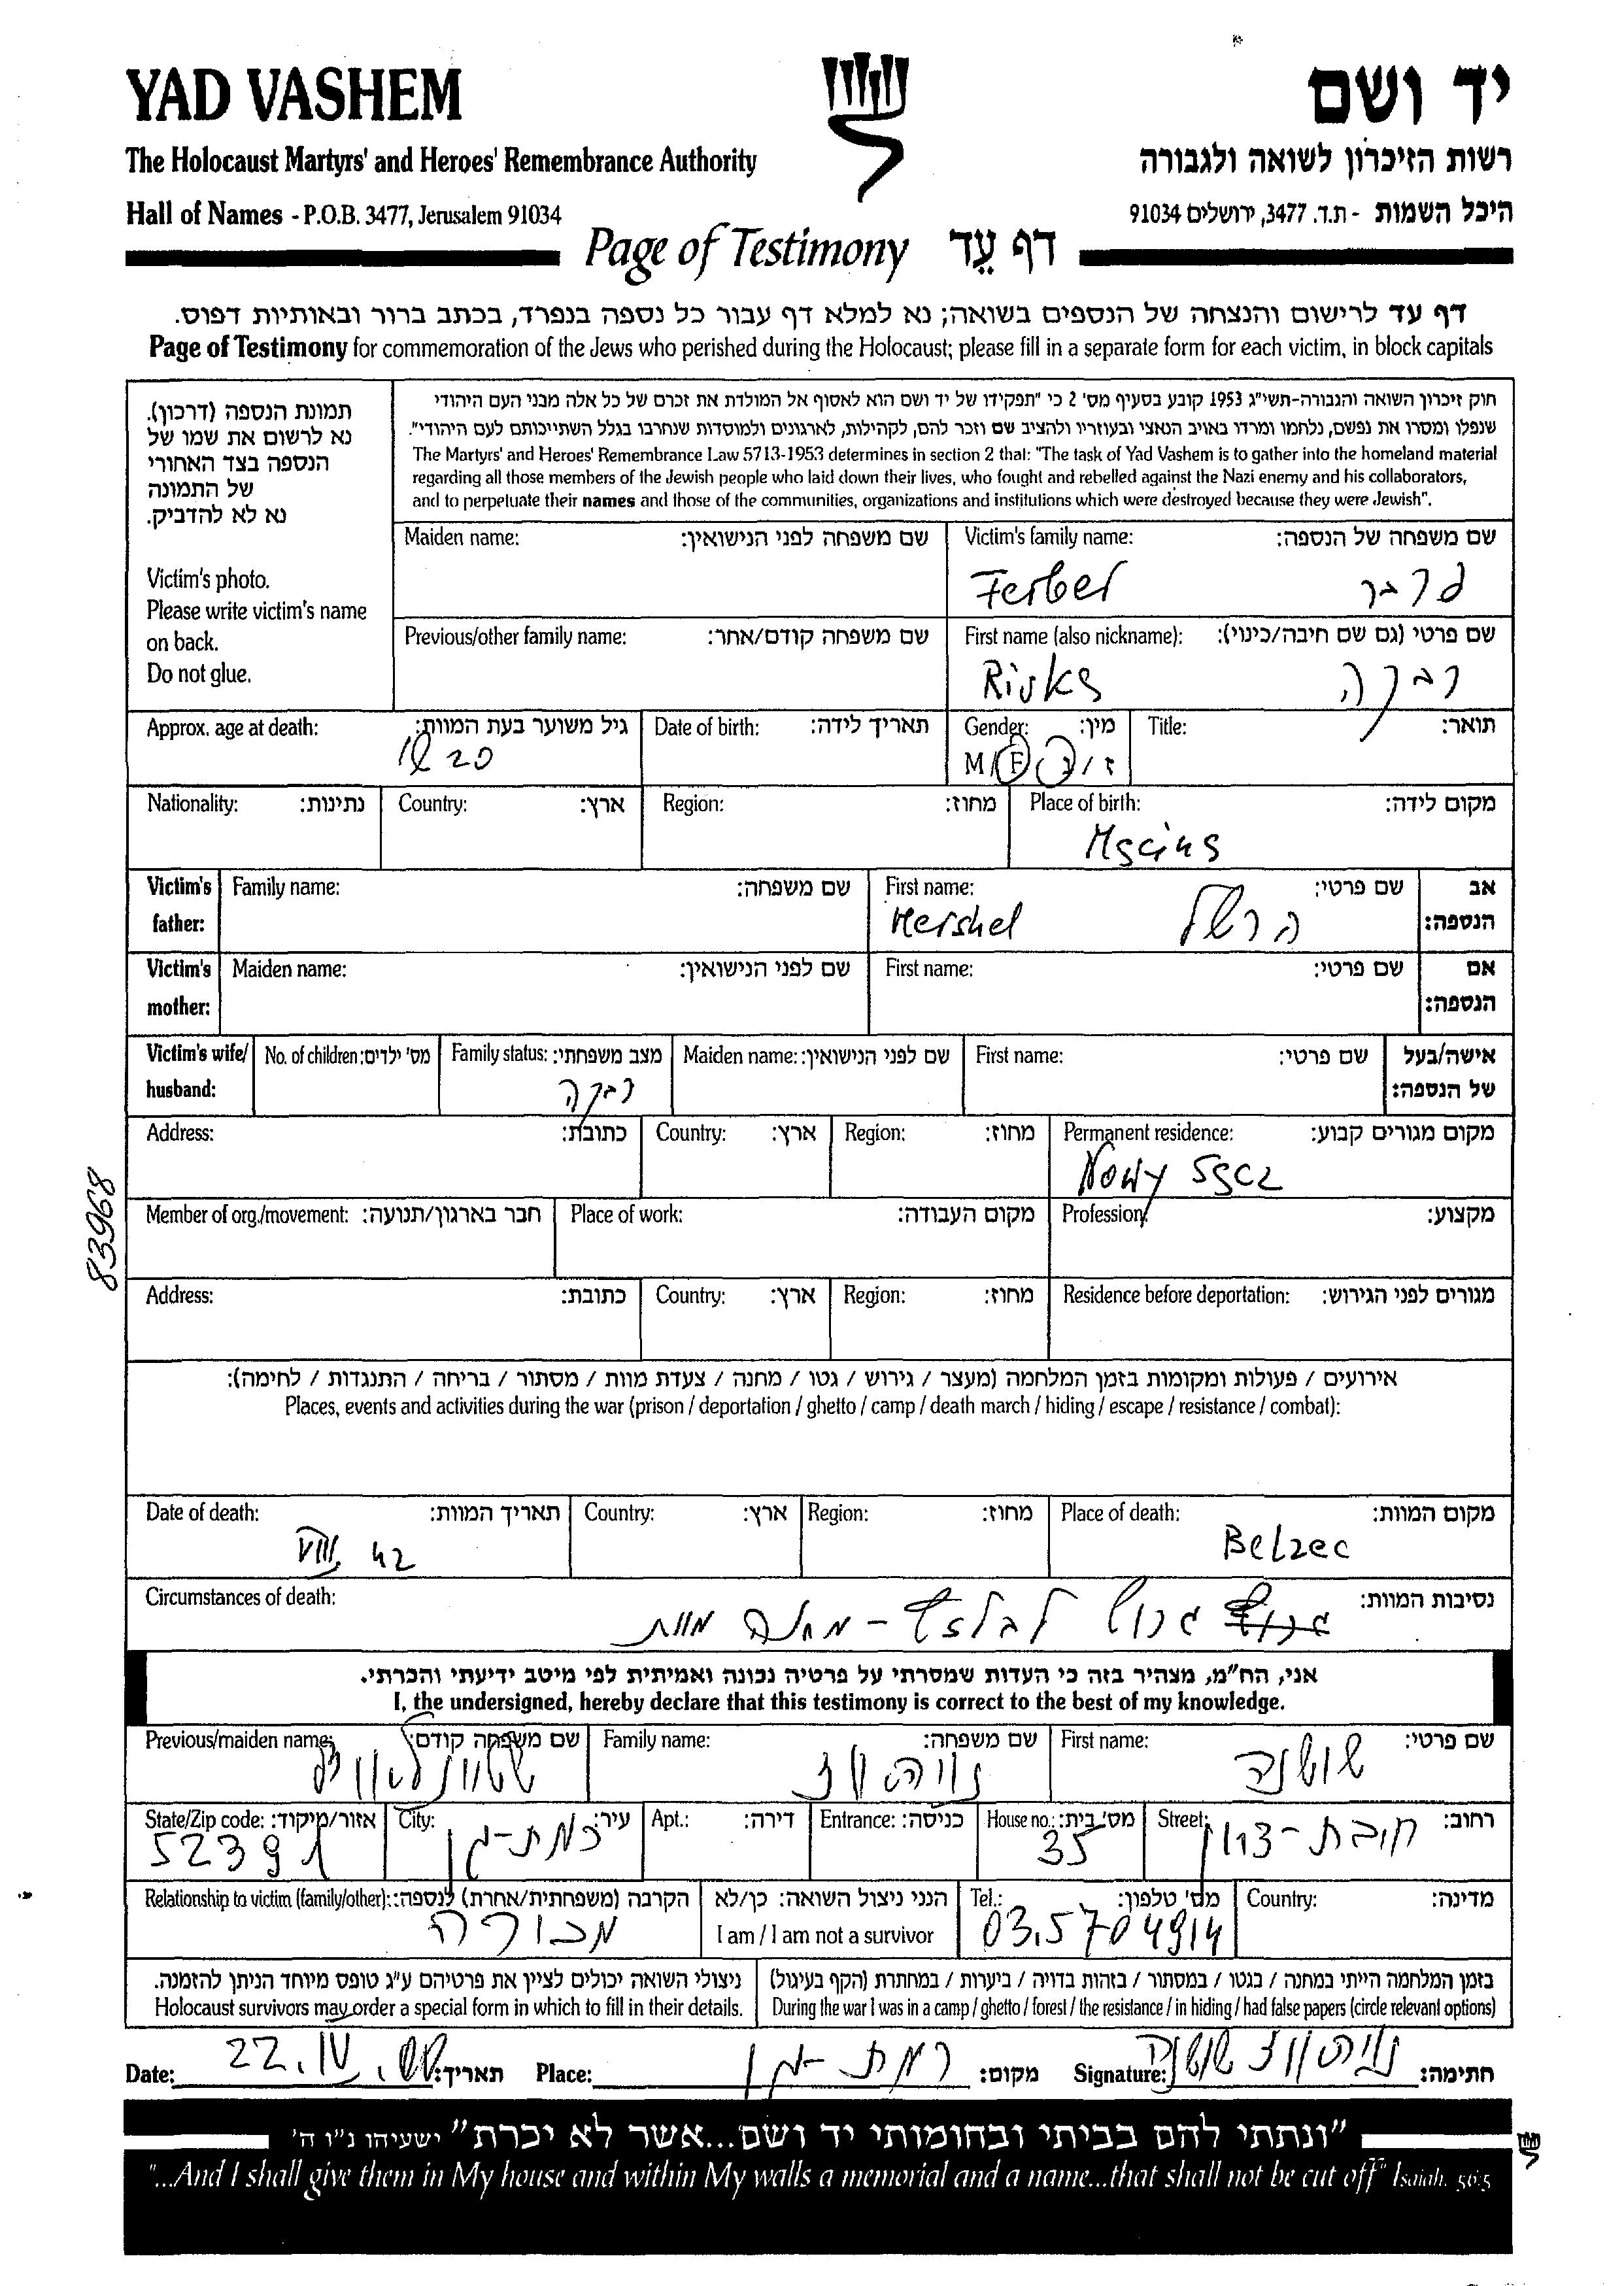 YAD VASHEM
יד ושם
The Holocaust Martyrs' and Heroes' Remembrance Authority
רשות הזיכרון לשואה ולגבורה
Hall of Names - P.O.B. 3477, Jerusalem 91034
היכל השמות - ת.ד. 3477, ירושלים 91034
Page of Testimony דף עֵד
דף עד לרישום והנצחה של הנספים בשואה; נא למלא דף עבור כל נספה בנפרד, בכתב ברור ובאותיות דפוס.
Page of Testimony for commemoration of the Jews who perished during the Holocaust; please fill in a separate form for each victim, in block capitals
תמונת הנספה (דרכון).
נא לרשום את שמו של
הנספה בצד האחורי
של התמונה
נא לא להדביק.
Victim's photo.
Please write victim's name
on back.
Do not glue.
חוק זיכרון השואה והגבורה-תשי"ג 1953 קובע בסעיף מס' 2 כי "תפקידו של יד ושם הוא לאסוף אל המולדת את זכרם של כל אלה מבני העם היהודי
שנפלו ומסרו את נפשם, נלחמו ומרדו באויב הנאצי ובעוזריו ולהציב שם וזכר להם, לקהילות, לארגונים ולמוסדות שנחרבו בגלל השתייכותם לעם היהודי".
The Martyrs' and Heroes' Remembrance Law 5713-1953 determines in section 2 that: "The task of Yad Vashem is to gather into the homeland material
regarding all those members of the Jewish people who laid down their lives, who fought and rebelled against the Nazi enemy and his collaborators,
and to perpetuate their names and those of the communities, organizations and institutions which were destroyed because they were Jewish".
Maiden name: שם משפחה לפני הנישואין:
Victim's family name: שם משפחה של הנספה:
Ferber פרבר
Previous/other family name: שם משפחה קודם/אחר:
First name (also nickname): שם פרטי (גם שם חיבה/כינוי):
Rivka רבקה
Approx. age at death: גיל משוער בעת המוות:
20
Date of birth: תאריך לידה:
Gender: מין:
M/F ז/נ
Title: תואר:
Nationality: נתינות:
Country: ארץ:
Region: מחוז:
Place of birth: מקום לידה:
Mscina
Victim's father:
Family name: שם משפחה:
First name: שם פרטי:
Hershel הרשל
אב הנספה:
Victim's mother:
Maiden name: שם לפני הנישואין:
First name: שם פרטי:
אם הנספה:
Victim's wife/ husband:
No. of children: מס' ילדים:
Family status: מצב משפחתי:
רבקה
Maiden name: שם לפני הנישואין:
First name: שם פרטי:
אישה/בעל של הנספה:
Address: כתובת:
Country: ארץ:
Region: מחוז:
Permanent residence: מקום מגורים קבוע:
Nowy Sacz
83968
Member of org./movement: חבר בארגון/תנועה:
Place of work: מקום העבודה:
Profession: מקצוע:
Address: כתובת:
Country: ארץ:
Region: מחוז:
Residence before deportation: מגורים לפני הגירוש:
אירועים / פעולות ומקומות בזמן המלחמה (מעצר / גירוש / גטו / מחנה / צעדת מוות / מסתור / בריחה / התנגדות / לחימה):
Places, events and activities during the war (prison / deportation / ghetto / camp / death march / hiding / escape / resistance / combat):
Date of death: תאריך המוות:
VIII. 42
Country: ארץ:
Region: מחוז:
Place of death: מקום המוות:
Belzec
Circumstances of death: נסיבות המוות:
גרוש לבלזץ - מחנה מוות
אני, הח"מ, מצהיר בזה כי העדות שמסרתי על פרטיה נכונה ואמיתית לפי מיטב ידיעתי והכרתי.
I, the undersigned, hereby declare that this testimony is correct to the best of my knowledge.
Previous/maiden name: שם משפחה קודם:
Family name: שם משפחה:
First name: שם פרטי:
שושנה
State/Zip code: אזור/מיקוד:
City: עיר:
רמת-גן
Apt.: דירה:
Entrance: כניסה:
House no.: מס' בית:
35
Street: רחוב:
חיבת-ציון
Relationship to victim (family/other): הקרבה (משפחתית/אחרת) לנספה:
מכורה
הנני ניצול השואה: כן/לא
I am / I am not a survivor
Tel.: מס' טלפון:
03.5704914
Country: מדינה:
ניצולי השואה יכולים לציין את פרטיהם ע"ג טופס מיוחד הניתן להזמנה.
Holocaust survivors may order a special form in which to fill in their details.
בזמן המלחמה הייתי במחנה / בגטו / במסתור / בזהות בדויה / ביערות / במחתרת (הקף בעיגול)
During the war I was in a camp / ghetto / forest / the resistance / in hiding / had false papers (circle relevant options)
Date: 22.IV. תאריך: Place: רמת-גן מקום: Signature: שושנה חתימה:
"ונתתי להם בביתי ובחומותי יד ושם...אשר לא יכרת" ישעיהו נ"ו ה'
"...And I shall give them in My house and within My walls a memorial and a name...that shall not be cut off" Isaiah. 56:5